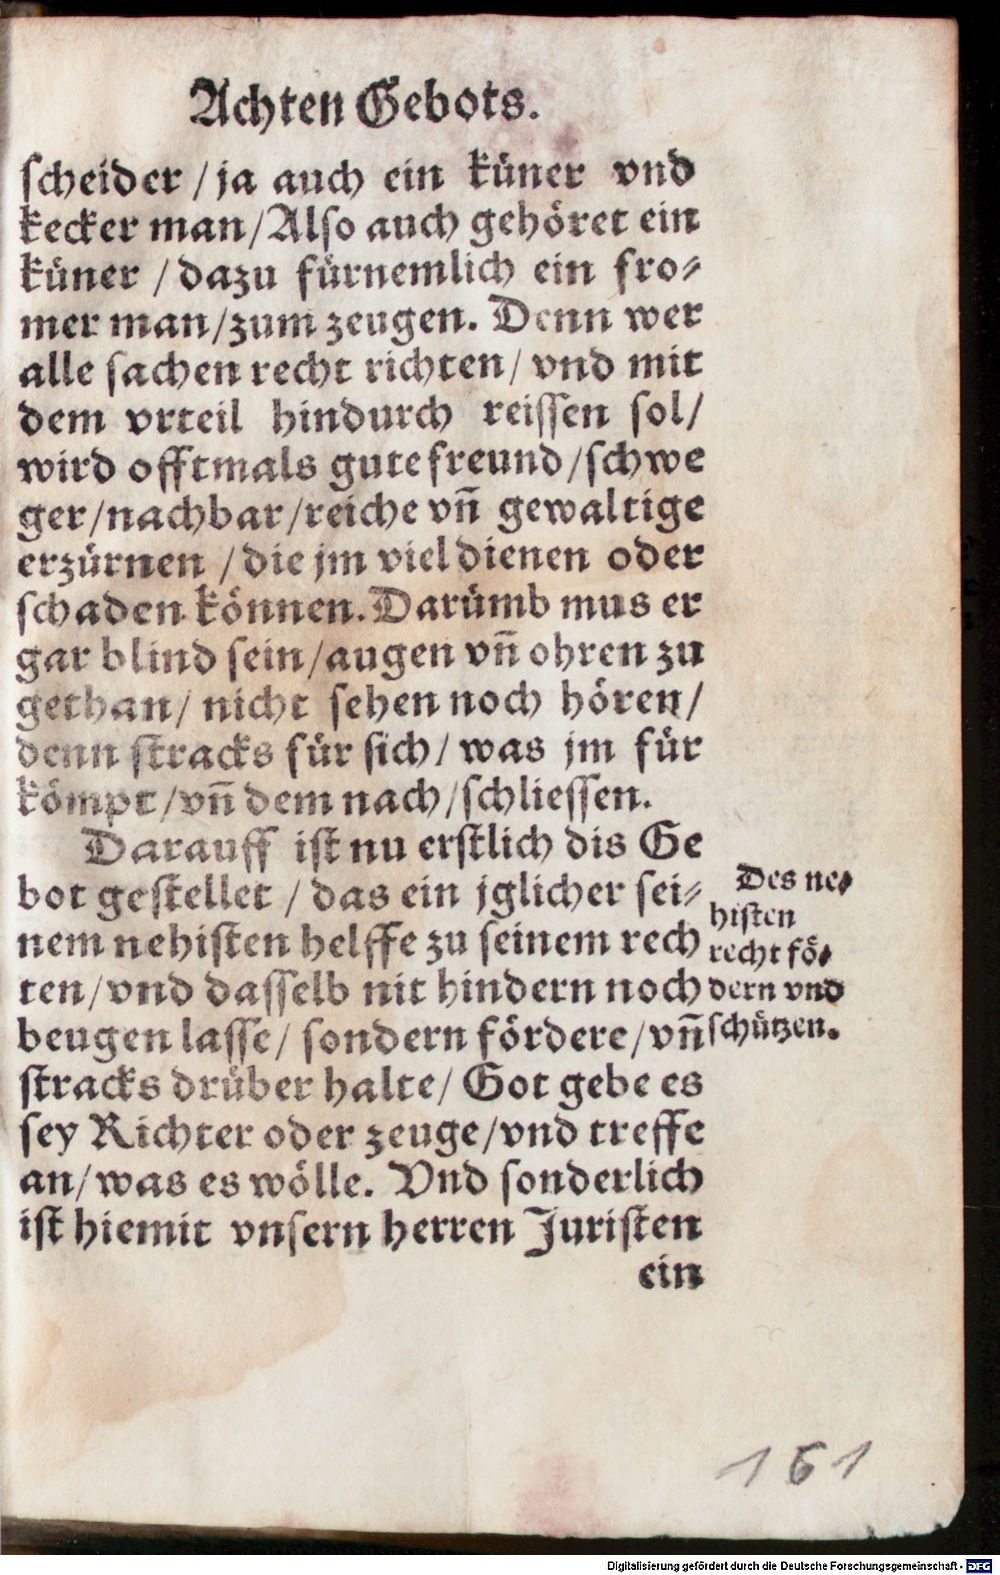 Achten Gebots.
scheider / ja auch ein küner vnd
kecker man / Also auch gehöret ein
küner / dazu fürnemlich ein fro⸗
mer man / zum zeugen. Denn wer
alle sachen recht richten / vnd mit
dem vrteil hindurch reissen sol /
wird offtmals gute freund / schwe
ger / nachbar / reiche vn̄ gewaltige
erzürnen / die jm viel dienen oder
schaden können. Darümb mus er
gar blind sein / augen vn̄ ohren zu
gethan / nicht sehen noch hören /
denn stracks für sich / was jm für
kömpt / vn̄ dem nach / schliessen.
Darauff ist nu erstlich dis Ge
bot gestellet / das ein jglicher sei⸗
nem nehisten helffe zu seinem rech
ten / vnd dasselb nit hindern noch
beugen lasse / sondern fördere / vn̄
stracks drüber halte / Got gebe es
sey Richter oder zeuge / vnd treffe
an / was es wölle. Vnd sonderlich
ist hiemit vnsern herren Juristen
ein
Des ne⸗
histen
recht fö⸗
dern vnd
schützen.
161
Digitalisierung gefördert durch die Deutsche Forschungsgemeinschaft - DFG